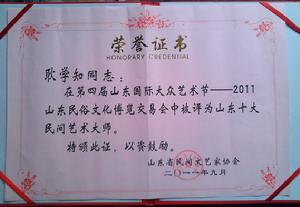 荣誉证书
HONORARY CREDENTIAL
耿学知同志：
在第四届山东国际大众艺术节——2011
山东民俗文化博览交易会中被评为山东十大
民间艺术大师。
特颁此证，以资鼓励。
山东省民间文艺家协会
二〇一一年九月